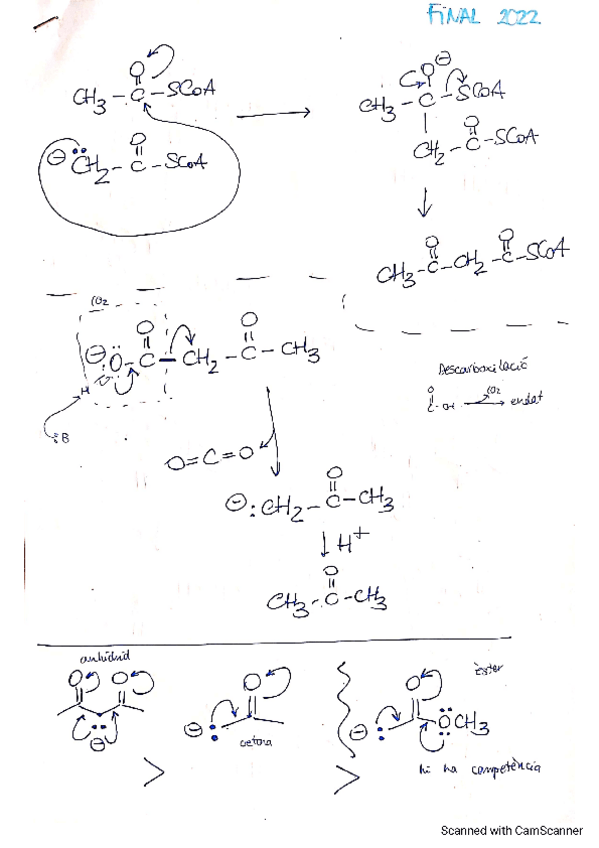 FINAL 2022
O
CH3 - C - SCoA
⊖ :CH2 - C - SCoA
O
O ⊖
CH3 - C - SCoA
O
CH2 - C - SCoA
O O
CH3 - C - CH2 - C - SCoA
CO2
O O
⊖ :O - C - CH2 - C - CH3
H
:B
Descarboxilació
O
C - OH → CO2 enolat
O=C=O
O
⊖ :CH2 - C - CH3
↓ H+
O
CH3 - C - CH3
anhídrid
O O
⊖
>
O
⊖
cetona
>
èster
O
⊖ OCH3
hi ha competència
Scanned with CamScanner